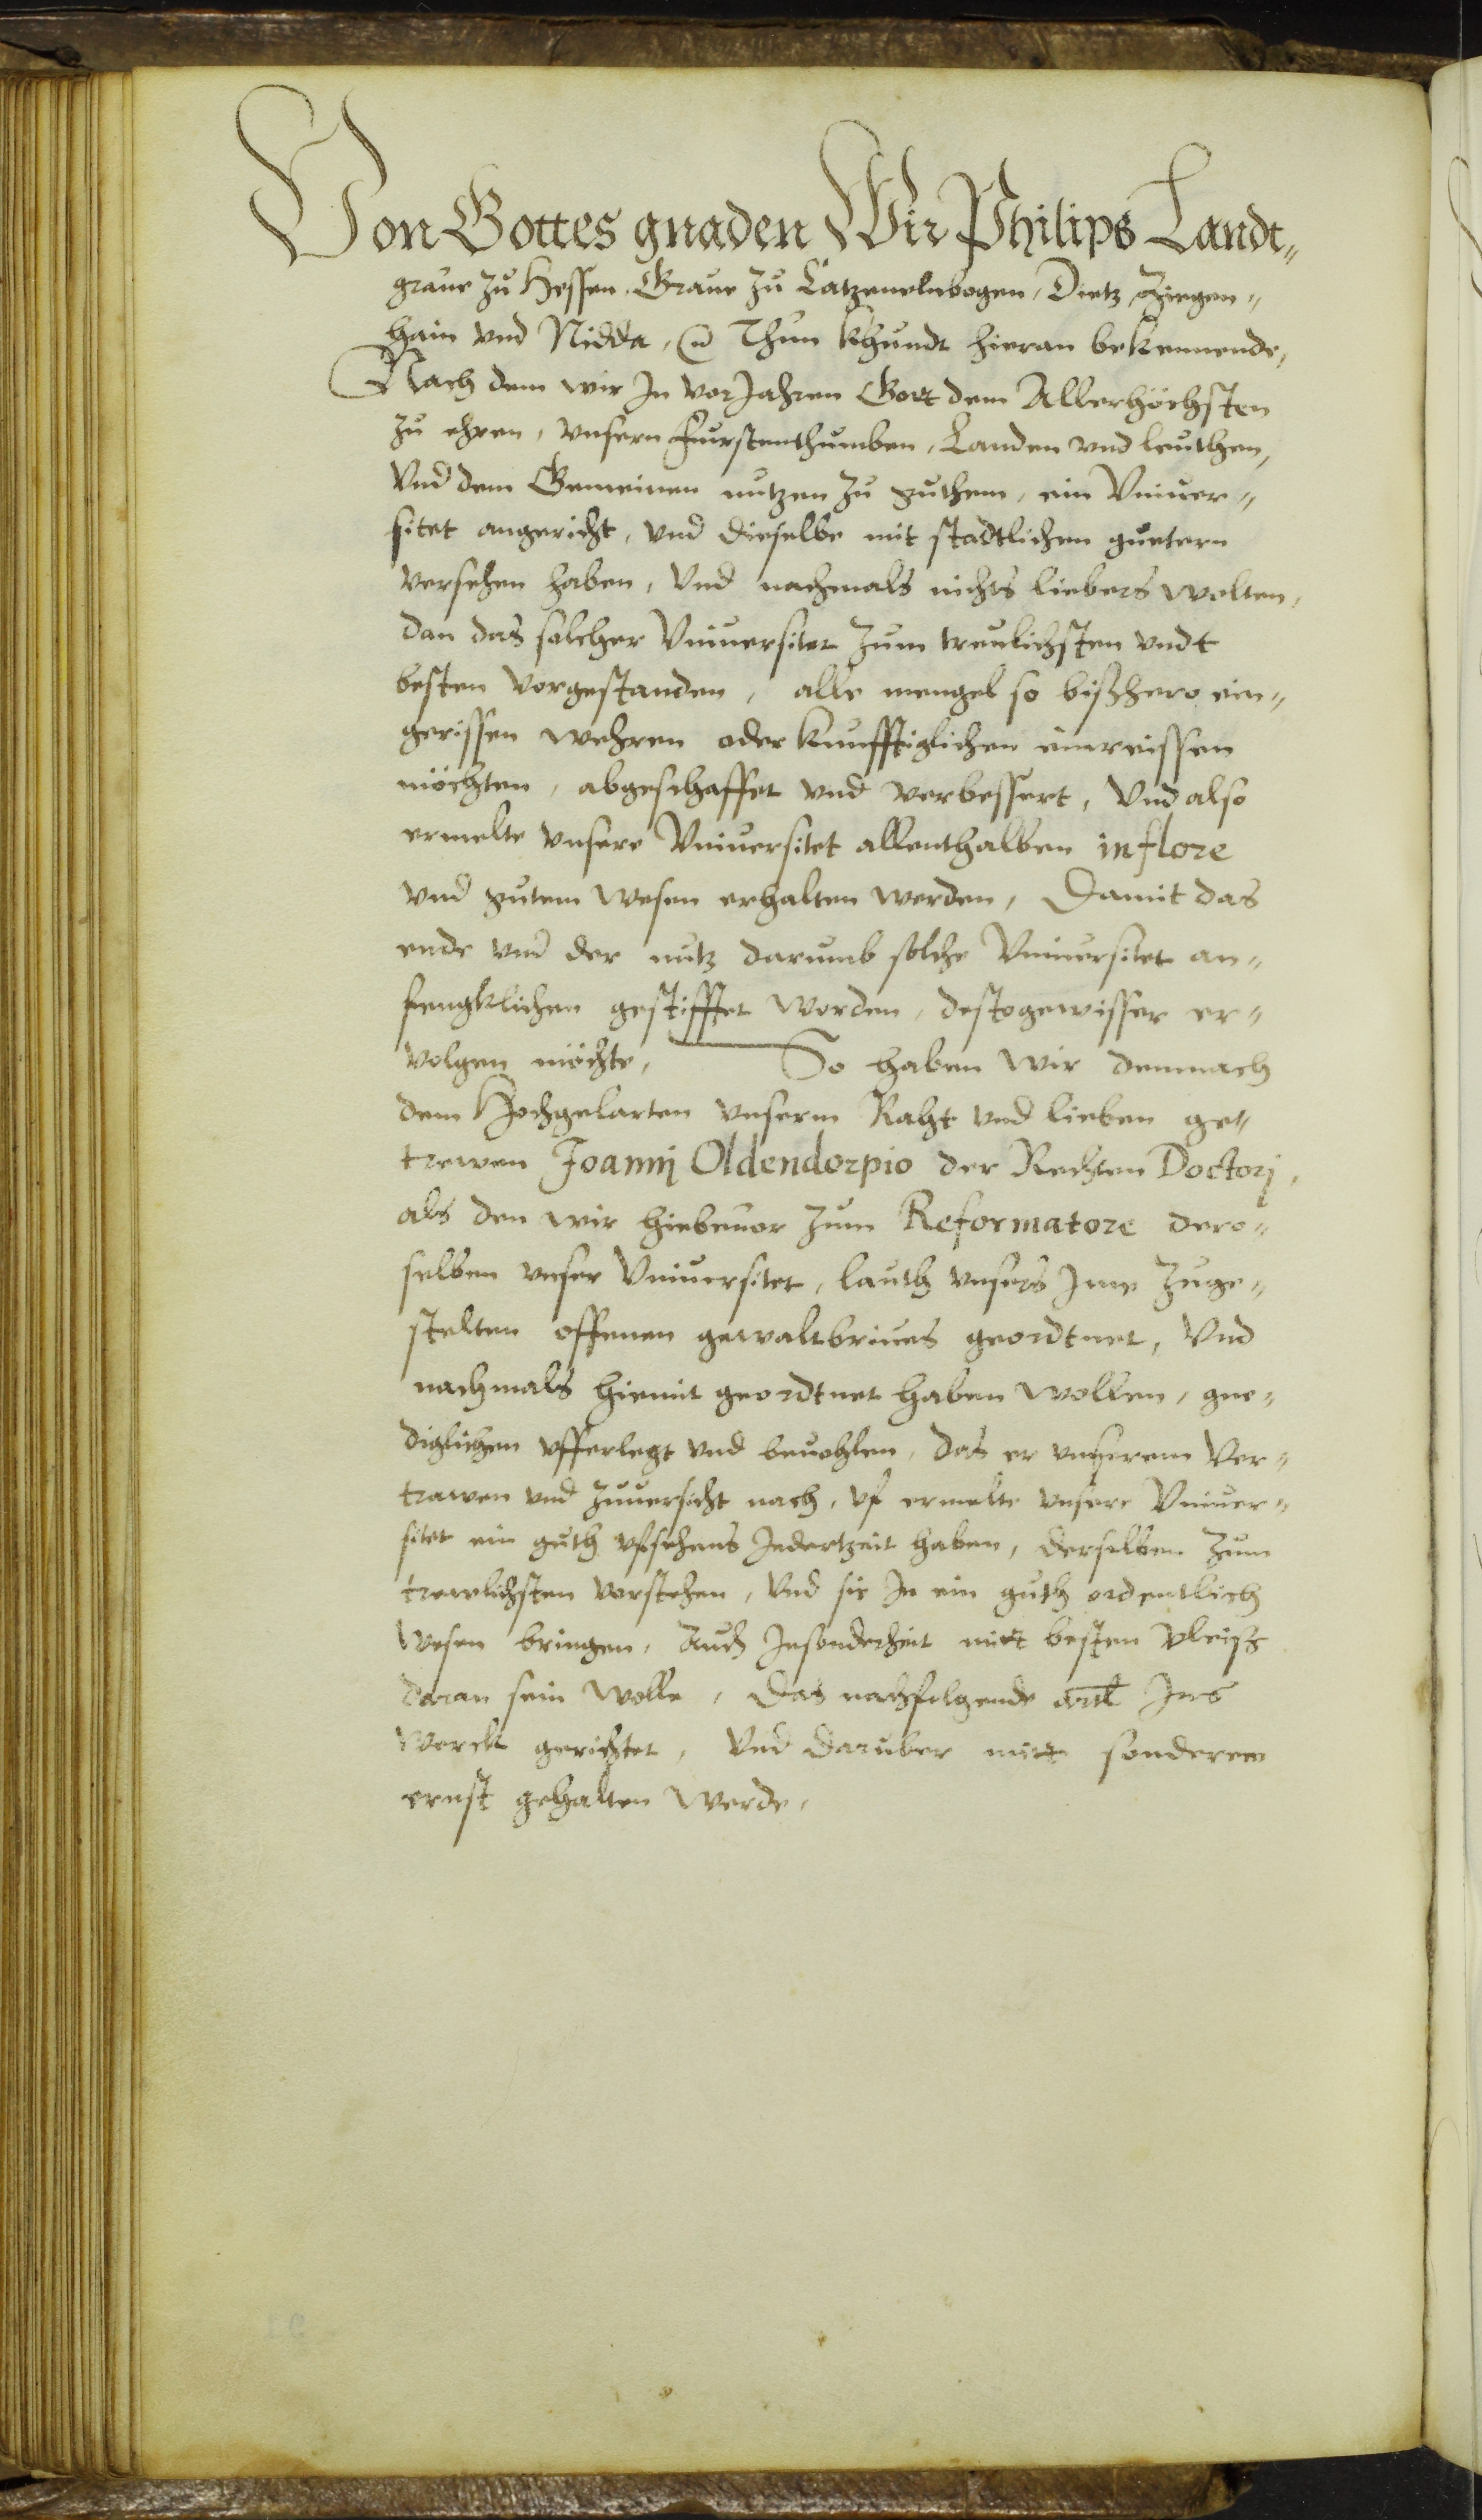 Von Gottes gnaden Wir Philips Landt„
graue zu Hessen, Graue zu Catzenelnbogen, Dietz, Ziegen„
hain vnd Nidda, Thun khundt hieran bekennende,
Nach dem wir In vor Jahren Gott dem Allerhöchsten
zu ehren, vnsern Furstenthumben, Landen vnd leuthen,
Vnd dem Gemeinen nutzen zu guthem, ein Vniuer„
sitet angericht, vnd dieselbe mit stadtlichen guetern
versehen haben, Vnd nachmals nichts liebers wolten,
dan das solcher Vniuersitet zum treulichsten vndt
besten vorgestanden, alle mengel so bißhero ein„
gerissen wehren oder kunfftiglichen einreissen
möchten, abgeschaffet vnd verbessert, Vnd also
ermelte vnsere Vniuersitet allenthalben in flore
vnd gutem wesen erhalten werden, Damit das
ende vnd der nutz darumb solche Vniuersitet an„
fengklichen gestifftet worden, destogewisser er„
volgen möchte, So haben wir demnach
dem Hochgelarten vnserm Raht vnd lieben ge„
trewen Joannj Oldendorpio der Rechten Doctorj,
als den wir hiebeuor zum Reformatore dero„
selben vnser Vniuersitet, lauth vnsers Jme zuge„
stelten offenen gewaltbriues geordtnet, Vnd
nachmals hiemit geordtnet haben wollen, gne„
diglichen vfferlegt vnd beuohlen, das er vnserem Ver„
trawen vnd zuuersicht nach, vf ermelte vnsere Vniuer„
sitet ein guth vfsehens Jedertzeit haben, derselben zum
trewlichsten vorstehen, Vnd sie In ein guth ordentlich
wesen bringen, Auch Insonderheit mitt besten vleiß
daran sein wolle, Das nachfolgende artl Ins
werck gerichtet, Vnd daruber mitt sonderem
ernst gehalten werde,